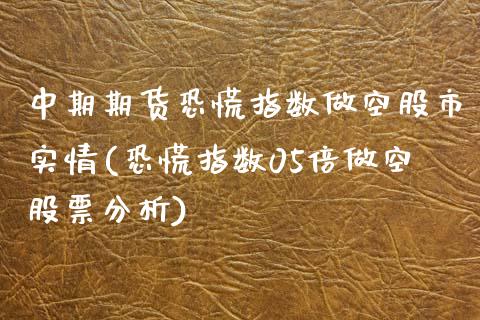 中期期货恐慌指数做空股市
实情(恐慌指数05倍做空
股票分析)